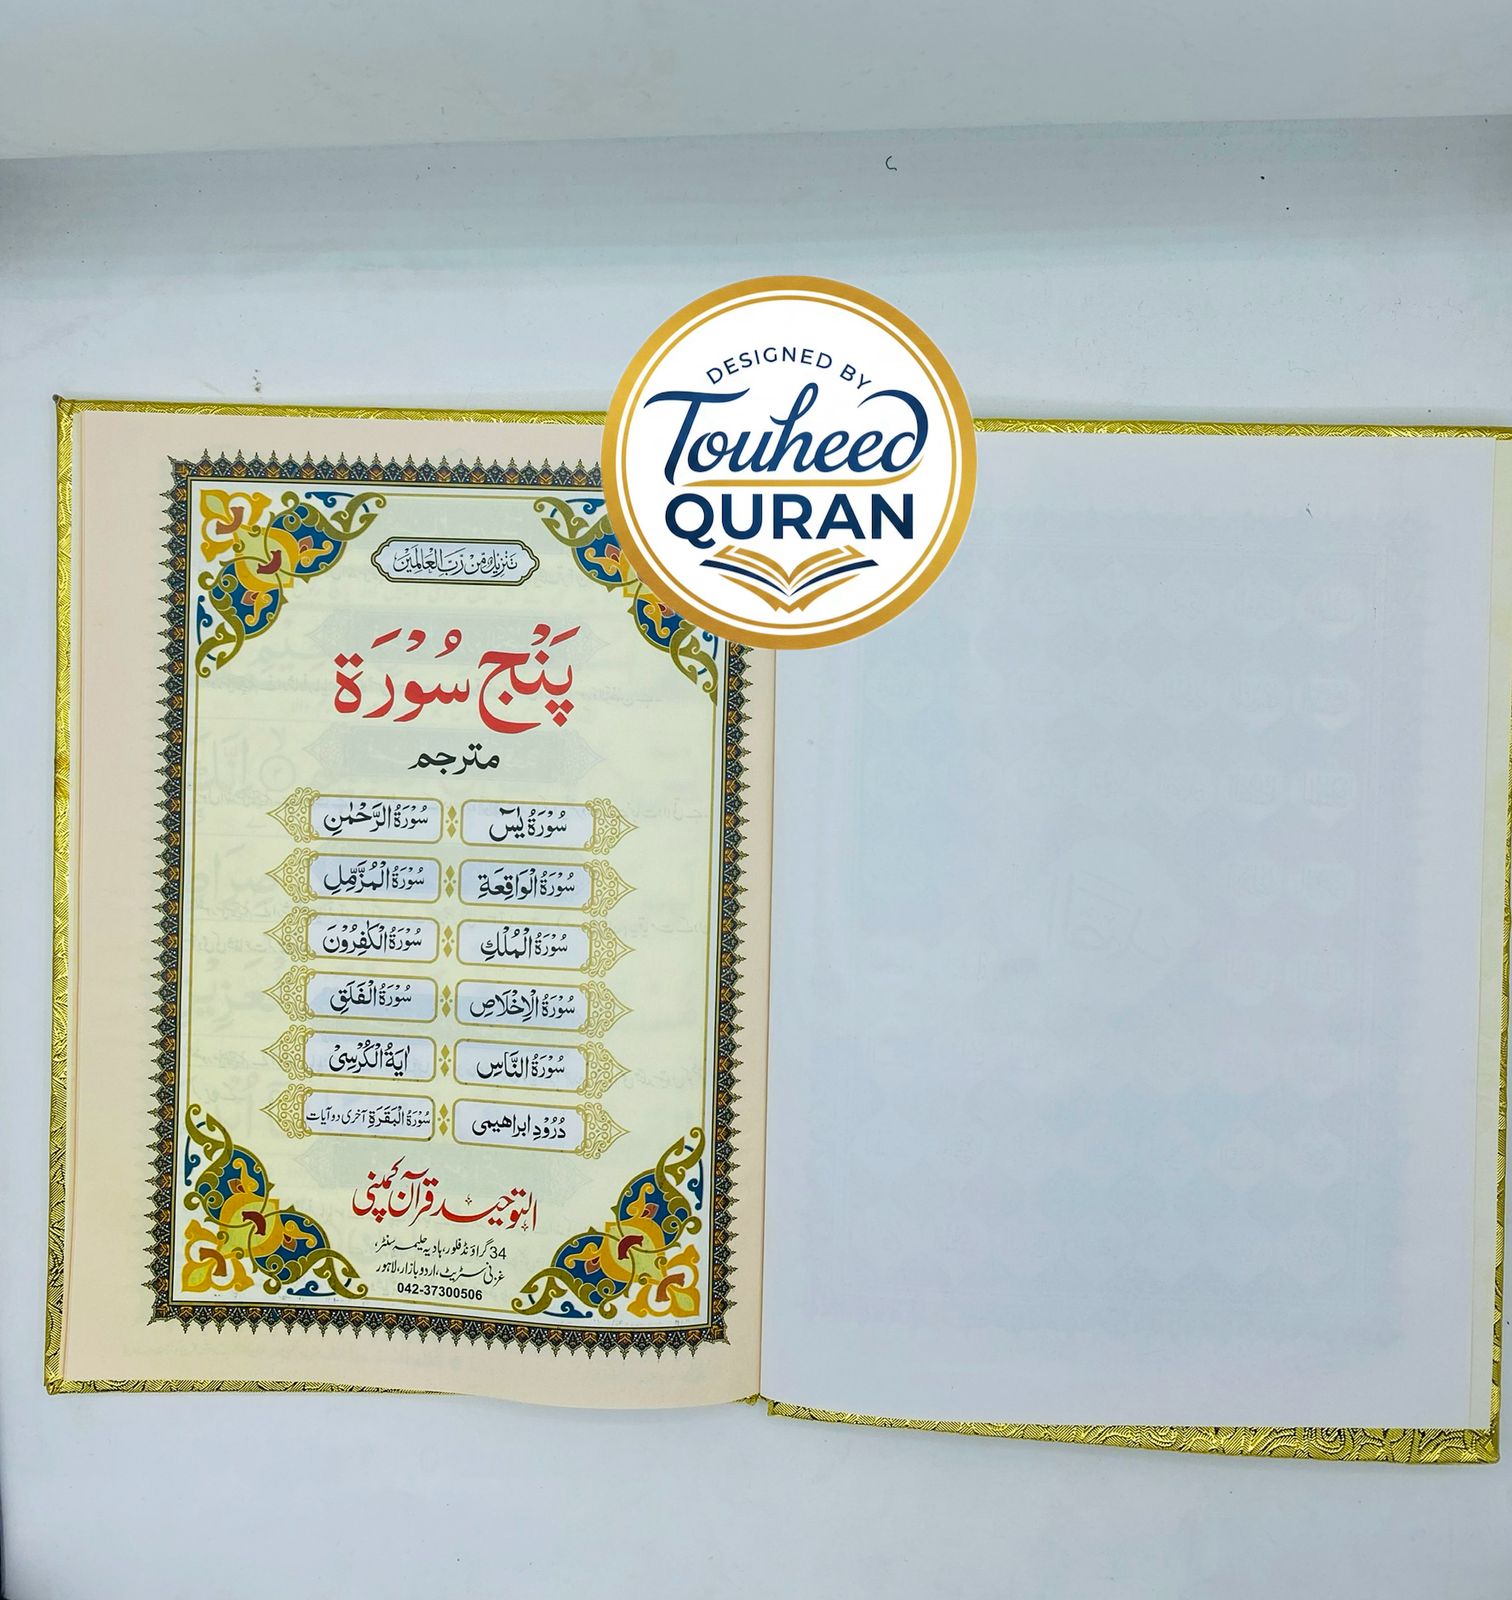 DESIGNED BY
Touheed
QURAN
تنزيل من رب العالمين
پَنْج سُوْرَة
مترجم
سُوْرَةُ يٰسٓ سُوْرَةُ الرَّحْمٰنِ
سُوْرَةُ الْوَاقِعَةِ سُوْرَةُ الْمُزَّمِّلِ
سُوْرَةُ الْمُلْكِ سُوْرَةُ الْكٰفِرُوْنَ
سُوْرَةُ الْاِخْلَاصِ سُوْرَةُ الْفَلَقِ
سُوْرَةُ النَّاسِ اٰيَةُ الْكُرْسِیْ
دُرُوْدِ ابراهيمی سُوْرَةُ الْبَقَرَةِ آخری دو آیات
التوحید قرآن کمپنی
34 گراؤنڈ فلور، ہادیہ حلیمہ سنٹر،
غزنی سٹریٹ، اردو بازار، لاہور
042-37300506